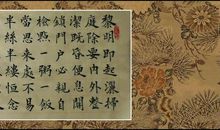 黎明即起灑掃
庭除要內外整
潔既昏便息關
鎖門戶必親自
檢點一粥一飯
當思來處不易
半絲半縷恒念